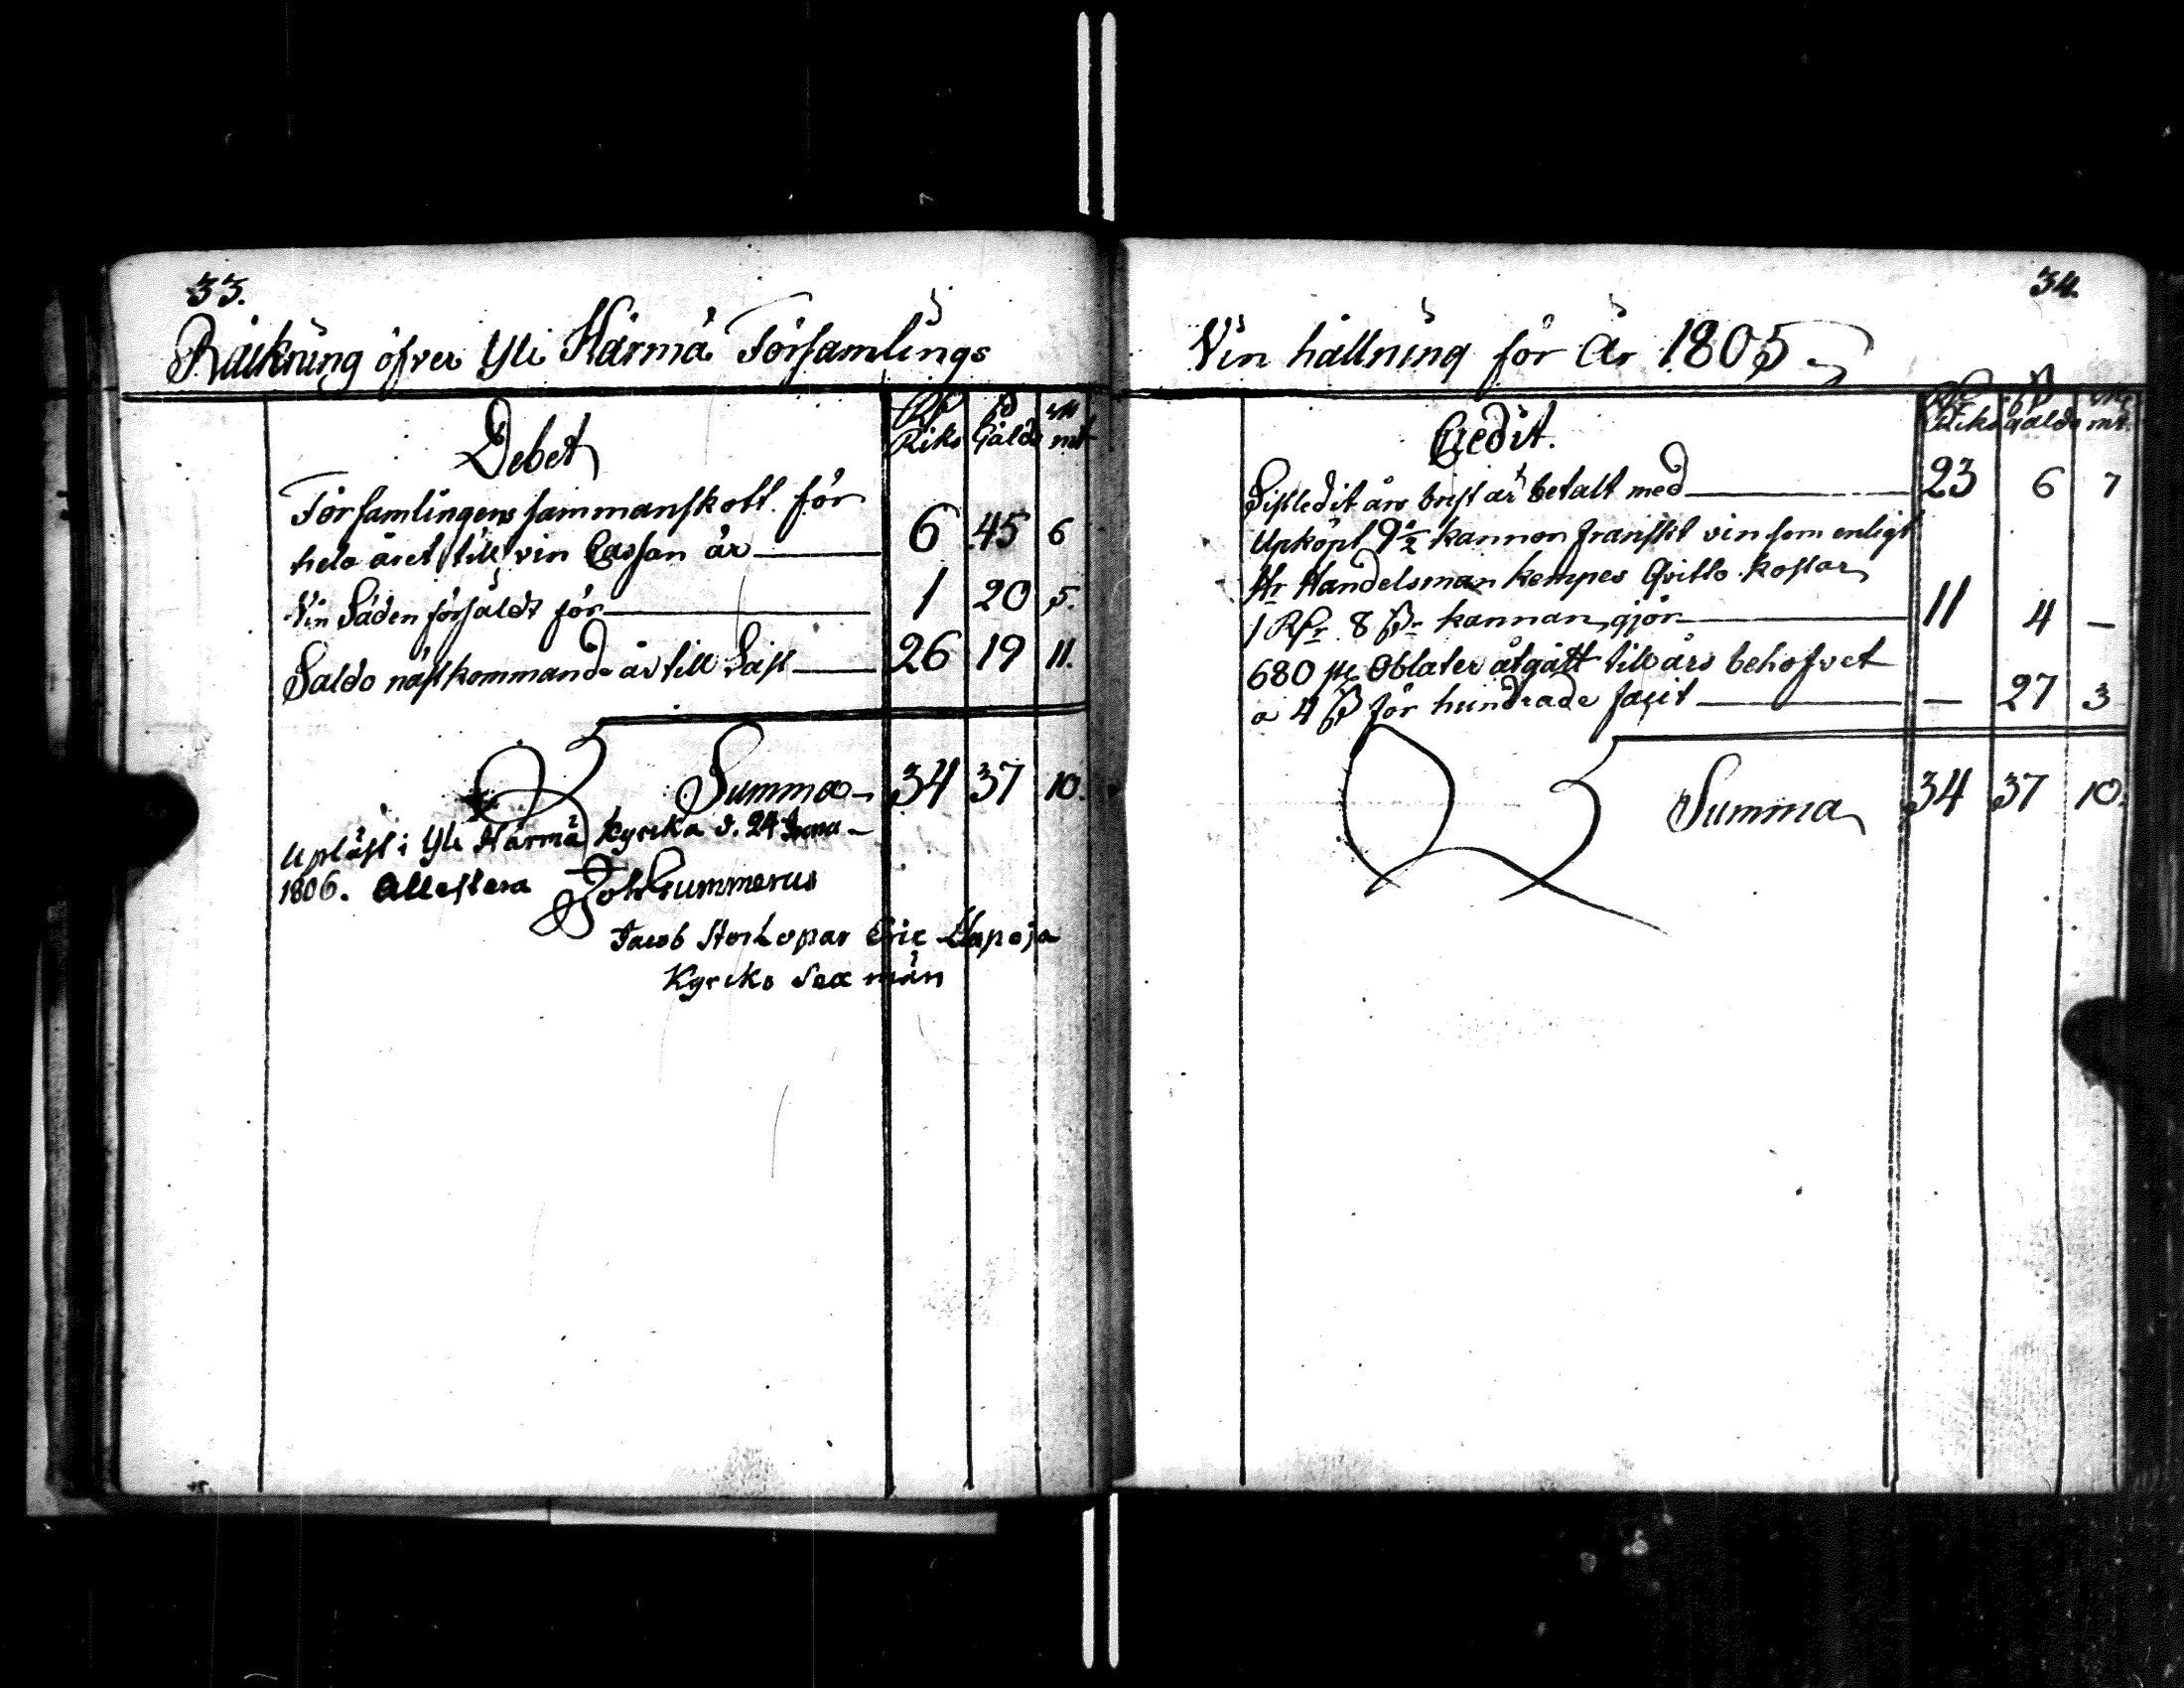 33.
Räkning öfver Yli Härmä Församlings
Debet
Riks Gäld mt
Församlingens sammanskott för
hela året till vin Cassan är 6 45 6
Vin Säden försäldt för 1 20 5.
Saldo nästkommande år till Last 26 19 11.
Summa 34 37 10.
Upläst i Yli Härmä kyrcka d. 24
1806. Attestera Joh Gummerus
Jacob Eric Hapoja
Kyrcko Sex män
34
Vin hållning för År 1805
Credit.
Riks Gälds mt.
Sistledit års brist är betalt med 23 6 7
Upköpt 9½ kannor franskt vin som enligt
Hr Handelsman Kempes Qvitto kostar
1 Rdr 8 ß kannan, gjör 11 4 —
680 st Oblater åtgått till års behofvet
a 4 ß för hundrade facit — 27 3
Summa 34 37 10.